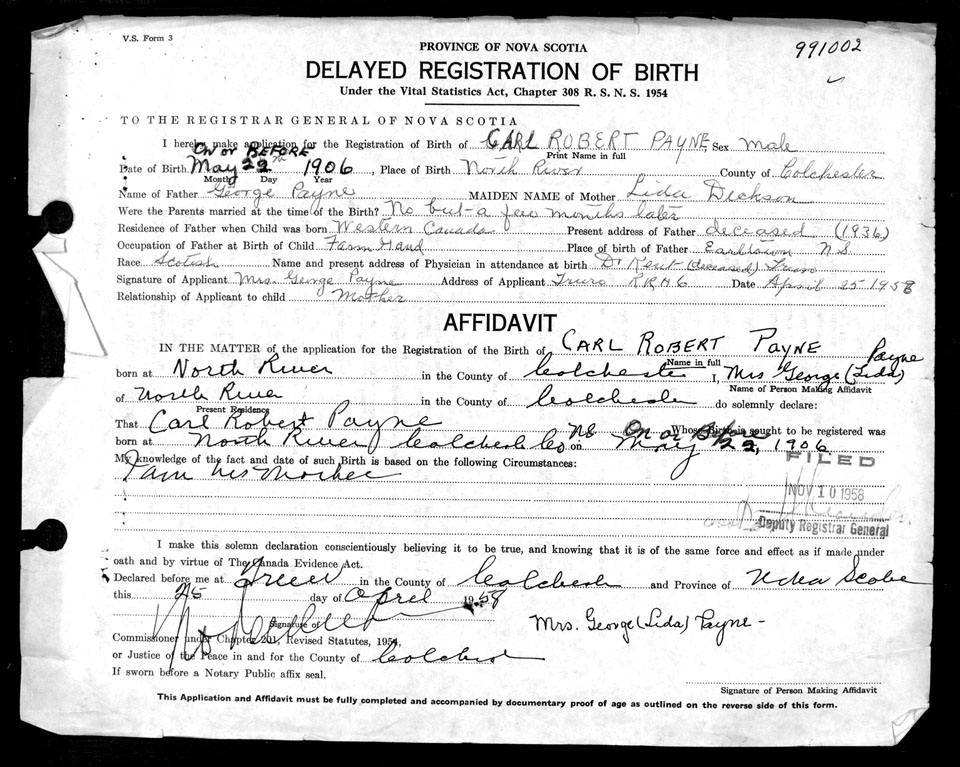 V.S. Form 3
991002
PROVINCE OF NOVA SCOTIA
DELAYED REGISTRATION OF BIRTH
Under the Vital Statistics Act, Chapter 308 R. S. N. S. 1954
TO THE REGISTRAR GENERAL OF NOVA SCOTIA
I hereby make application for the Registration of Birth of CARL ROBERT PAYNE, Sex Male
Print Name in full
ON OR BEFORE
Date of Birth May 22nd 1906, Place of Birth North River County of Colchester
Month Day Year
Name of Father George Payne MAIDEN NAME of Mother Lida Dickson
Were the Parents married at the time of the Birth? No but a few months later
Residence of Father when Child was born Western Canada Present address of Father deceased (1936)
Occupation of Father at Birth of Child Farm Hand Place of birth of Father Earltown N.S.
Race Scotish Name and present address of Physician in attendance at birth Dr Kent (deceased) Truro
Signature of Applicant Mrs. George Payne Address of Applicant Truro RR#6 Date April 25 1958
Relationship of Applicant to child Mother
AFFIDAVIT
IN THE MATTER of the application for the Registration of the Birth of CARL ROBERT PAYNE
Name in full
born at North River in the County of Colchester I, Mrs George (Lida) Payne
Name of Person Making Affidavit
of North River in the County of Colchester do solemnly declare:
Present Residence
That Carl Robert Payne Whose Birth is sought to be registered was
born at North River Colchester Co NS on On or Before May 22, 1906
My knowledge of the fact and date of such Birth is based on the following Circumstances:
I am his Mother
FILED
NOV 10 1958
Deputy Registrar General
I make this solemn declaration conscientiously believing it to be true, and knowing that it is of the same force and effect as if made under
oath and by virtue of The Canada Evidence Act.
Declared before me at Truro in the County of Colchester and Province of Nova Scotia
this 25 day of April 1958
Mrs. George (Lida) Payne -
Signature of
Commissioner under Chapter 201, Revised Statutes, 1954,
or Justice of the Peace in and for the County of Colchester
If sworn before a Notary Public affix seal.
Signature of Person Making Affidavit
This Application and Affidavit must be fully completed and accompanied by documentary proof of age as outlined on the reverse side of this form.